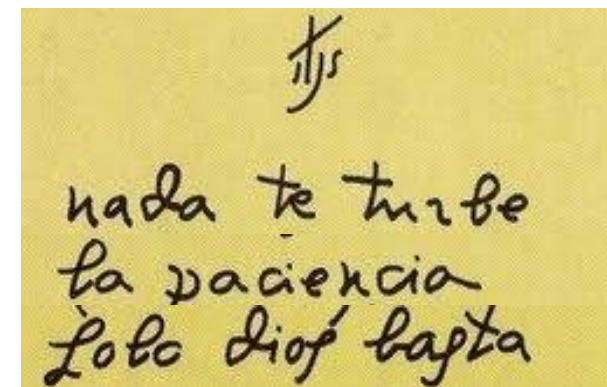 jhs
nada te turbe
la paciencia
solo dios basta